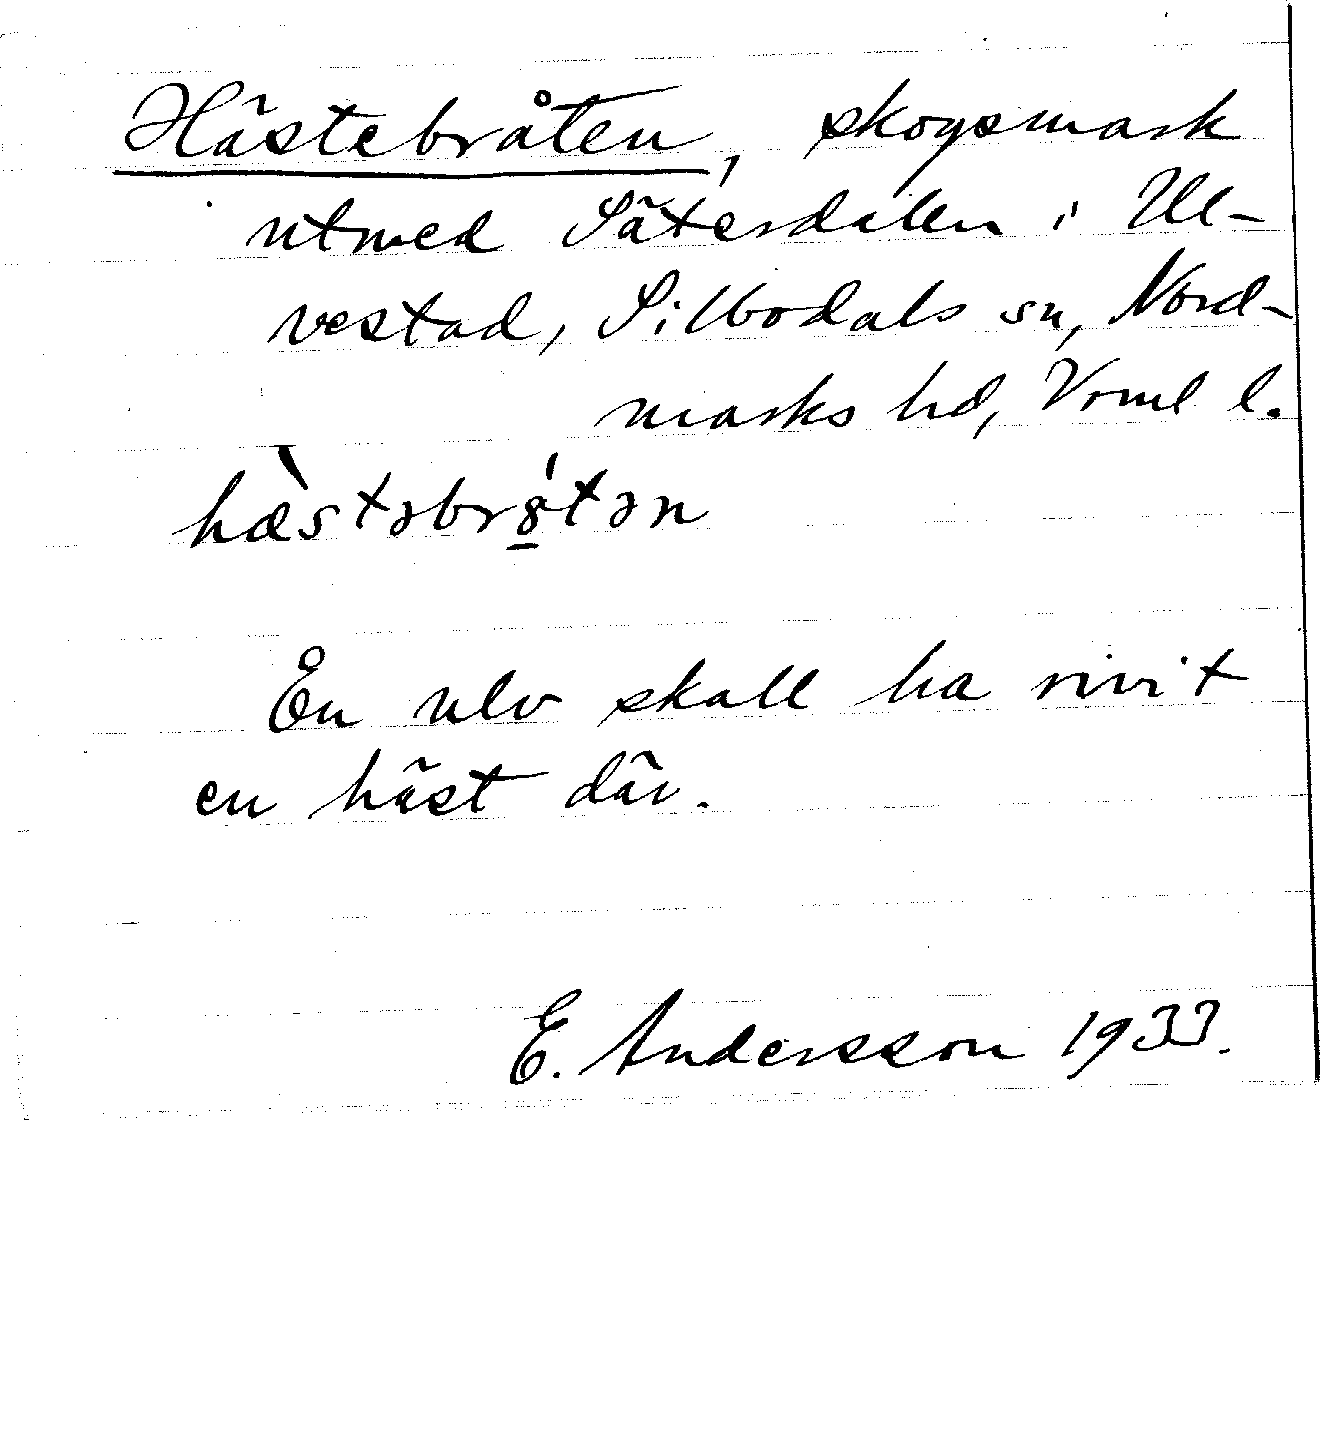 Hästebråten, skogsmark
utmed Säterdalen i Ul-
vestad, Silbodals sn, Nord-
marks hd, Vrml l.
hæ̀stəbr8̲́tən
En ulv skall ha rivit
en häst där.
E. Andersson 1933.